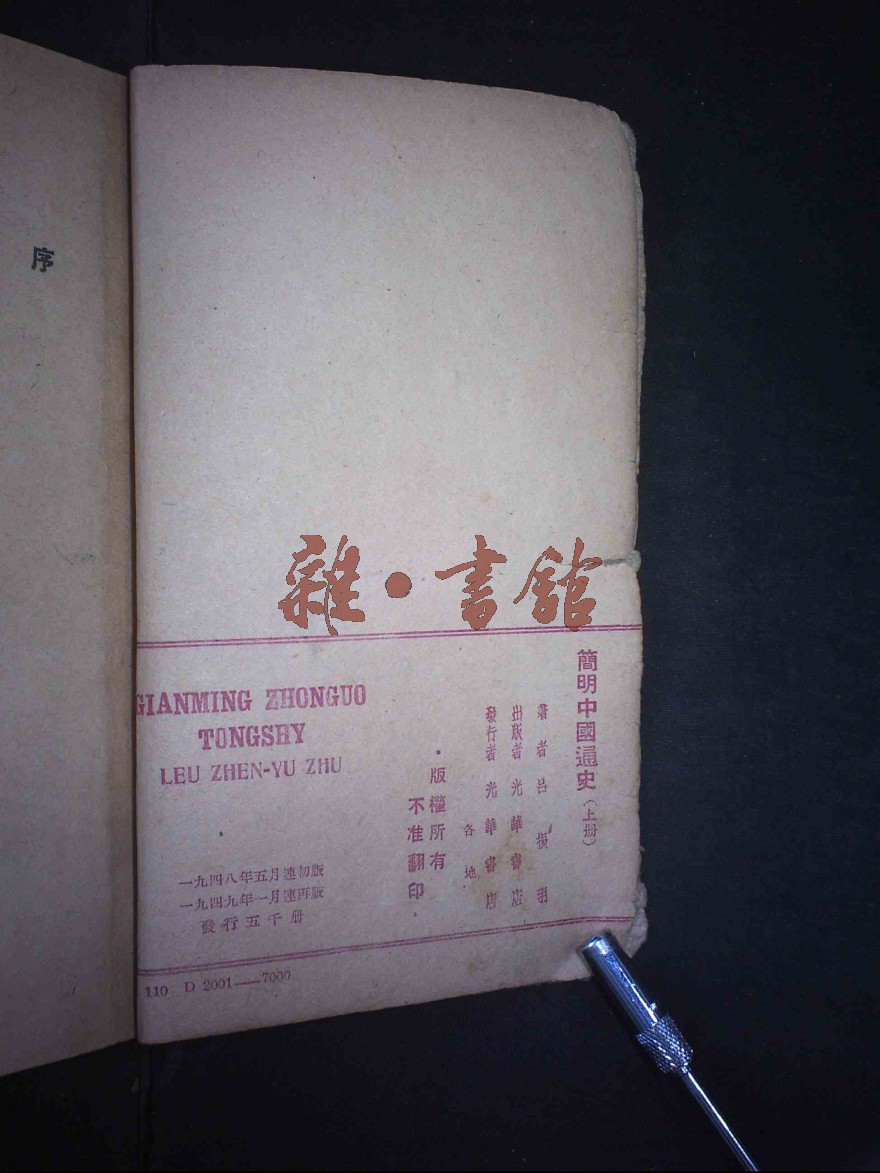 序
雜·書館
簡明中國通史（上册）
著者 呂振羽
出版者 光華書店
發行者 光華書店
各地
版權所有
不准翻印
GIANMING ZHONGUO
TONGSHY
LEU ZHEN-YU ZHU
一九四八年五月連初版
一九四九年一月連再版
發行五千册
110 D 2001——7000